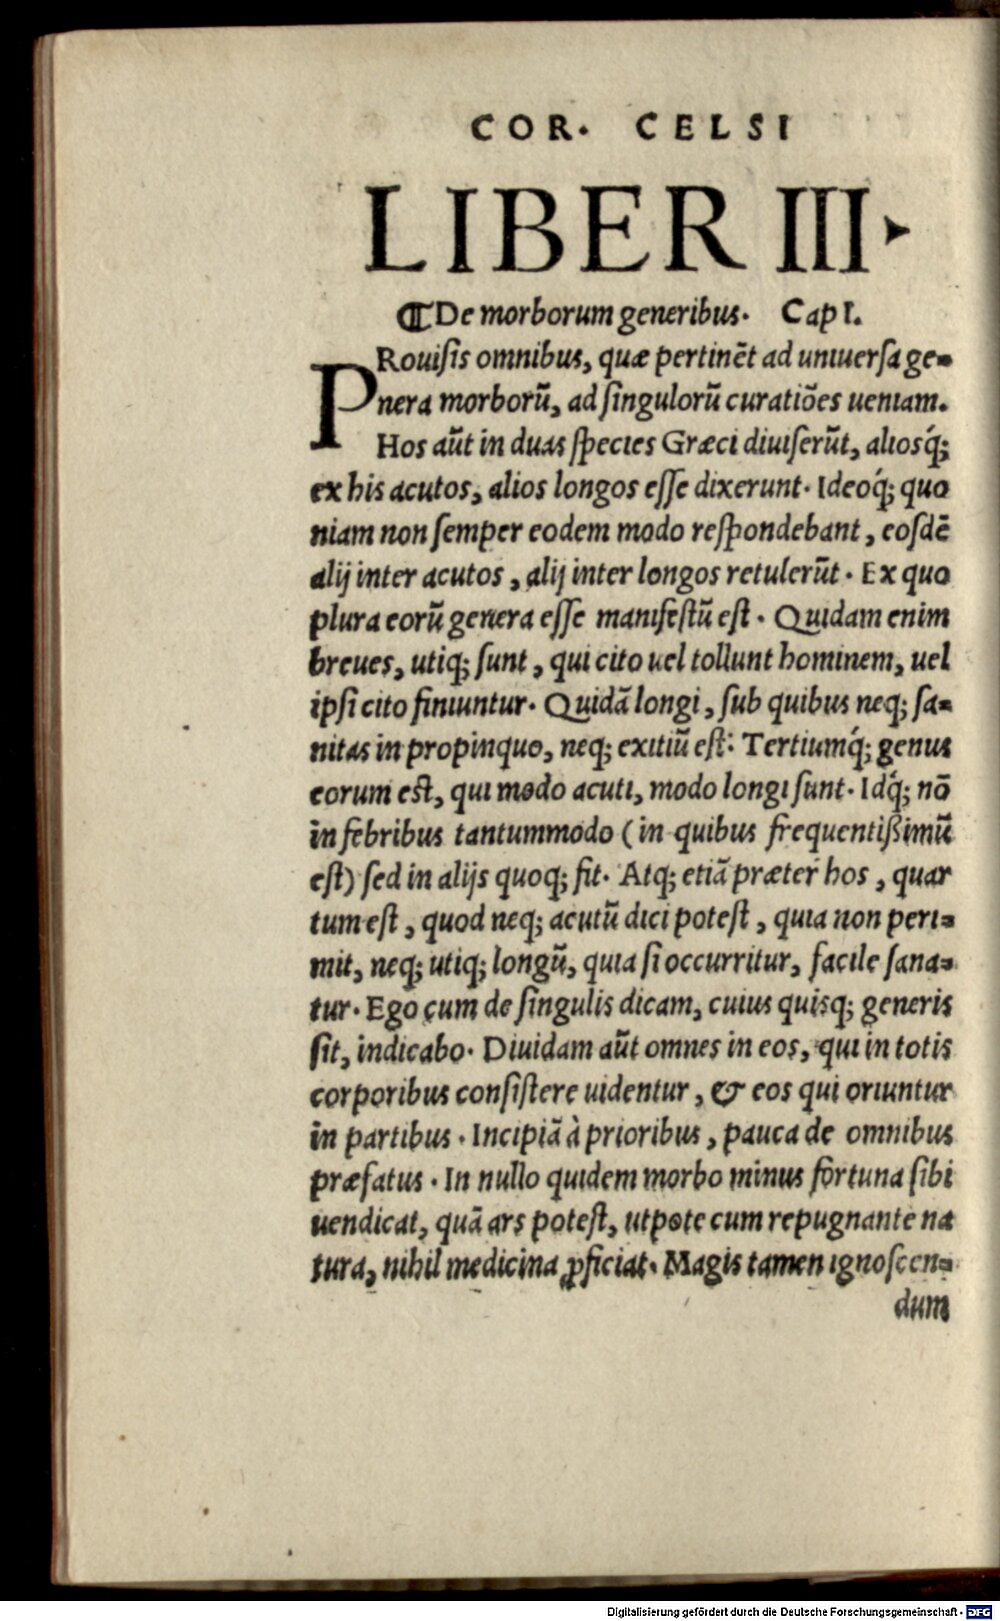 COR. CELSI
LIBER III.
¶De morborum generibus. Cap I.
PRouiſis omnibus, quæ pertinẽt ad uniuerſa ge-
nera morborũ, ad ſingulorũ curatiões ueniam.
Hos aũt in duas ſpecies Græci diuiſerũt, aliosq́;
ex his acutos, alios longos eſſe dixerunt. Ideoq́; quo
niam non ſemper eodem modo reſpondebant, eoſdẽ
alij inter acutos, alij inter longos retulerũt. Ex quo
plura eorũ genera eſſe manifeſtũ eſt. Quidam enim
breues, utiq; ſunt, qui cito uel tollunt hominem, uel
ipſi cito finiuntur. Quidã longi, ſub quibus neq; ſa-
nitas in propinquo, neq; exitiũ eſt: Tertiumq́; genus
eorum eſt, qui modo acuti, modo longi ſunt. Idq́; nõ
in febribus tantummodo (in quibus frequentißimũ
eſt) ſed in alijs quoq; fit. Atq; etiã præter hos, quar
tum eſt, quod neq; acutũ dici poteſt, quia non peri-
mit, neq; utiq; longũ, quia ſi occurritur, facile ſana-
tur. Ego cum de ſingulis dicam, cuius quisq; generis
ſit, indicabo. Diuidam aũt omnes in eos, qui in totis
corporibus conſiſtere uidentur, & eos qui oriuntur
in partibus. Incipiã à prioribus, pauca de omnibus
præfatus. In nullo quidem morbo minus fortuna ſibi
uendicat, quã ars poteſt, utpote cum repugnante na
tura, nihil medicina ꝓficiat. Magis tamen ignoſcen-
dum
Digitalisierung gefördert durch die Deutsche Forschungsgemeinschaft - DFG